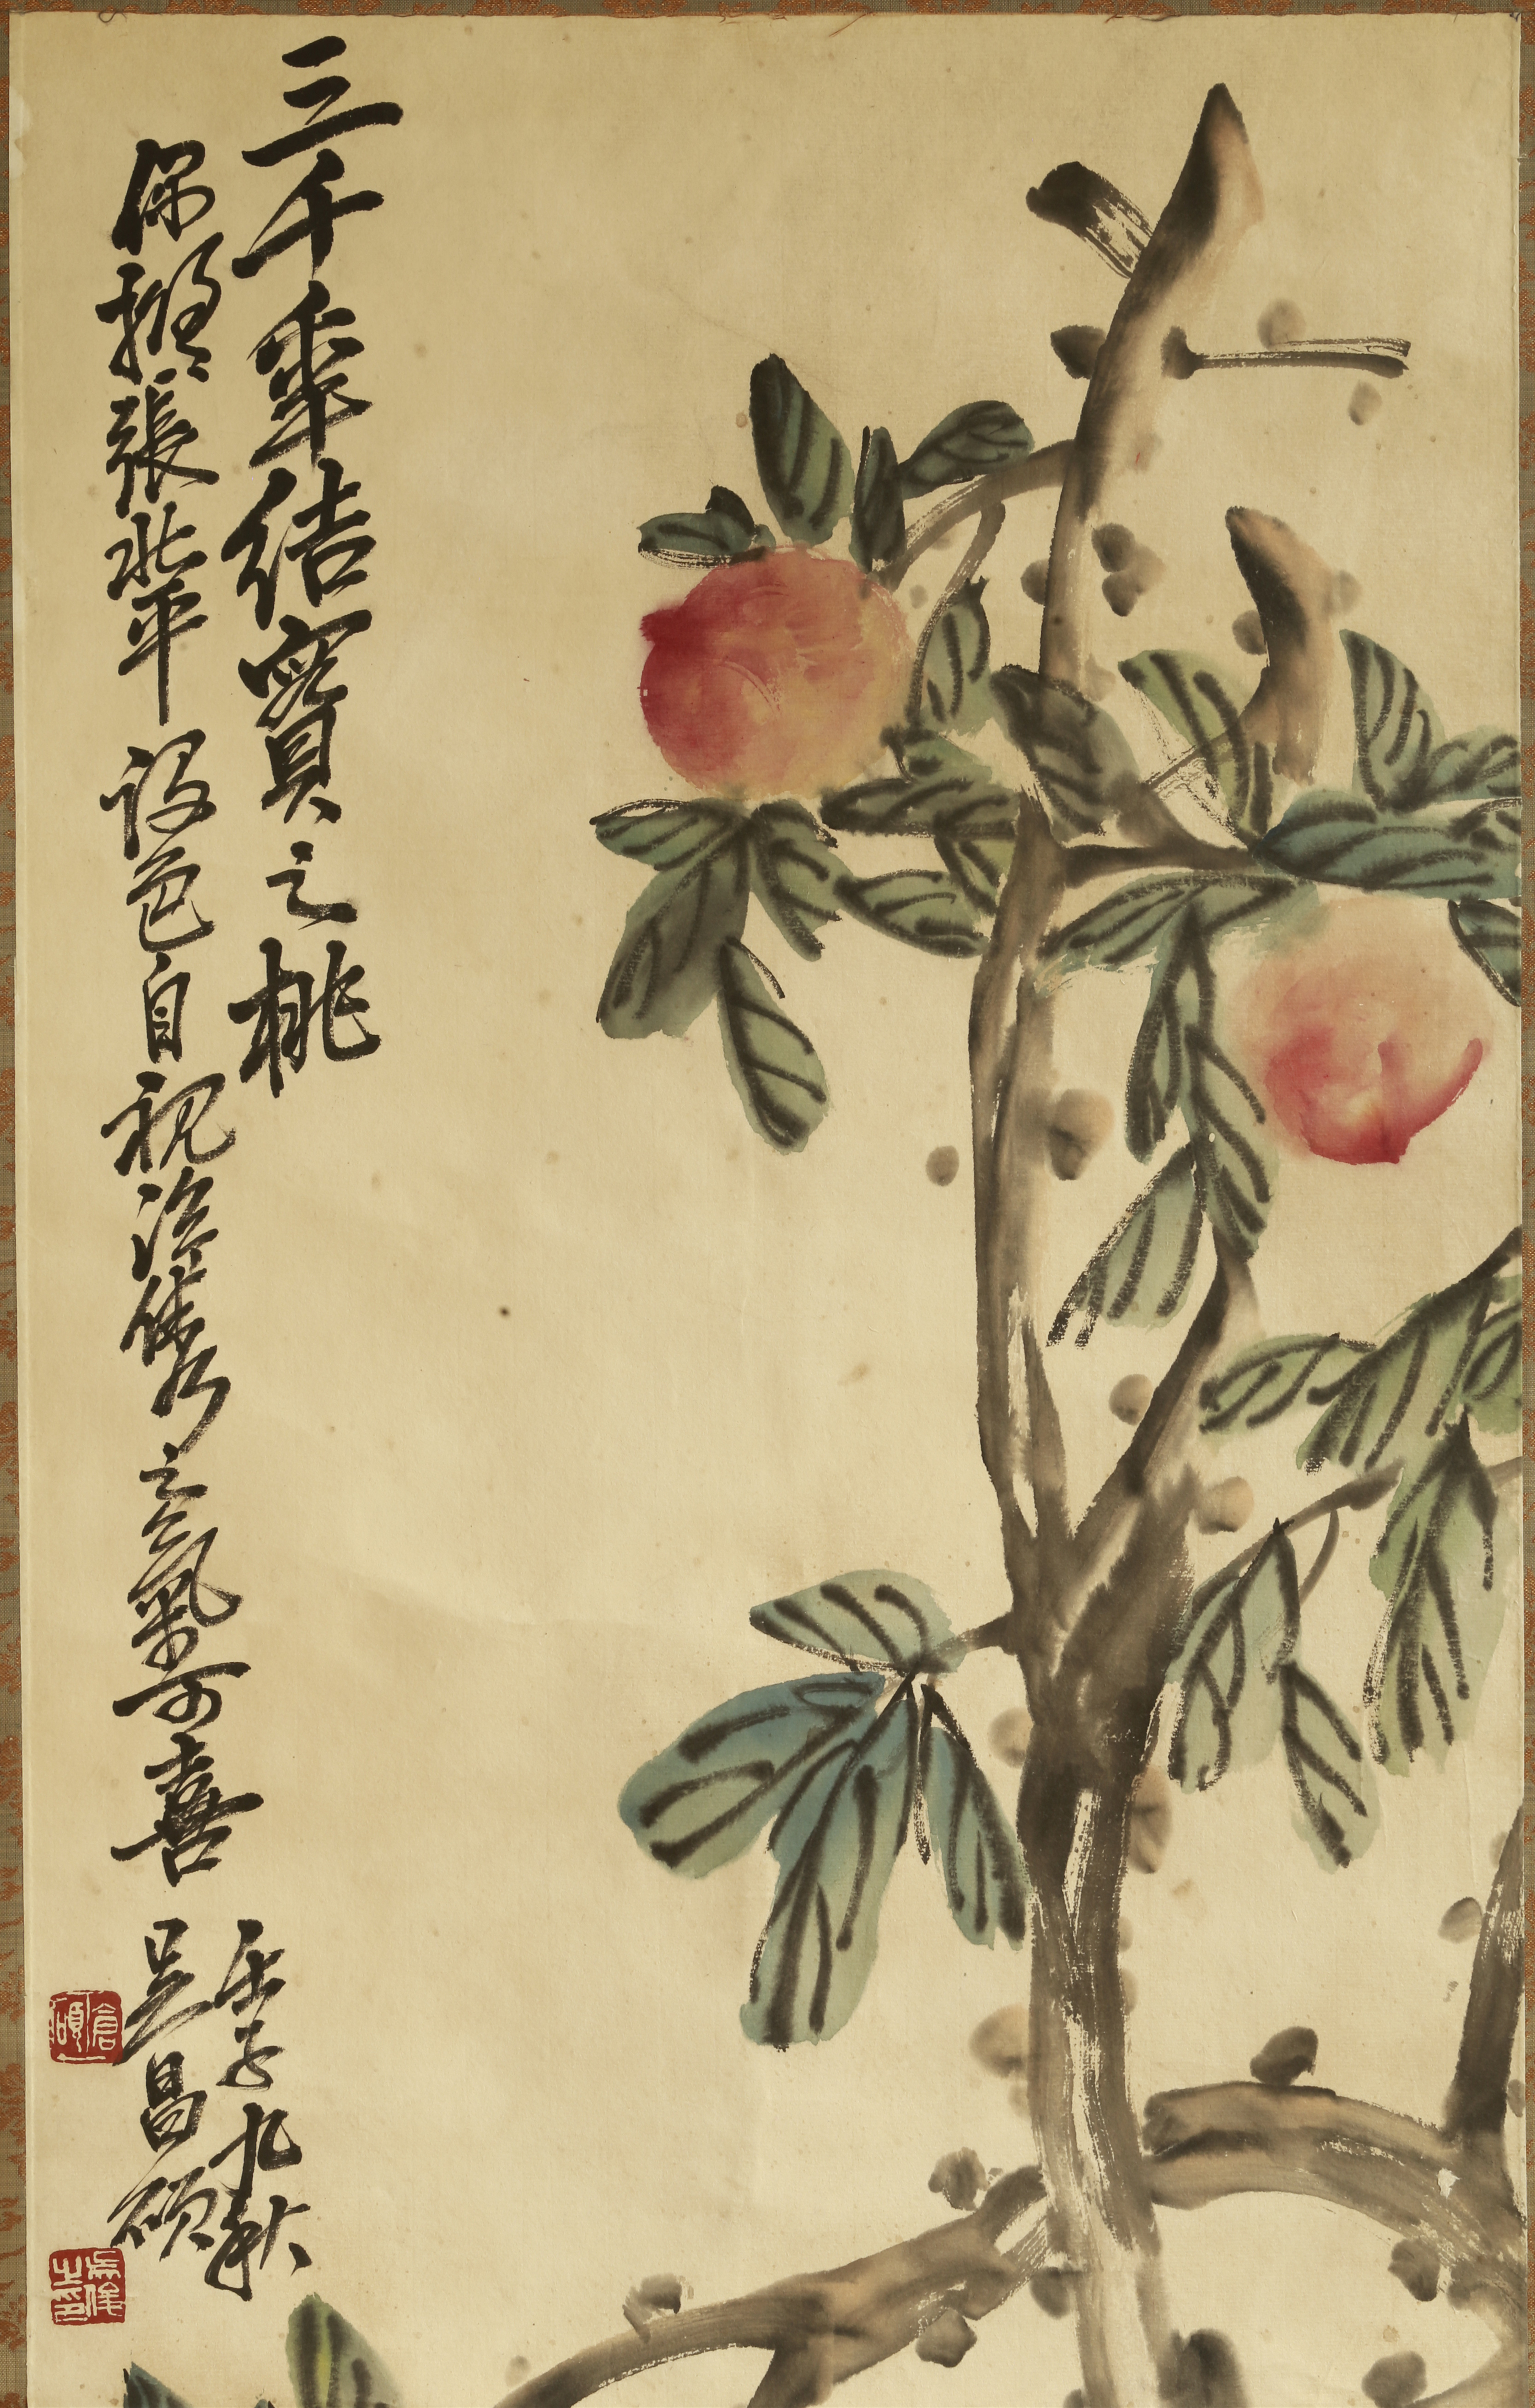 三千秊結實之桃
偶擬張北平設色自視儁之氣可喜
壬子九秋
吳昌碩
倉碩
吳俊之印